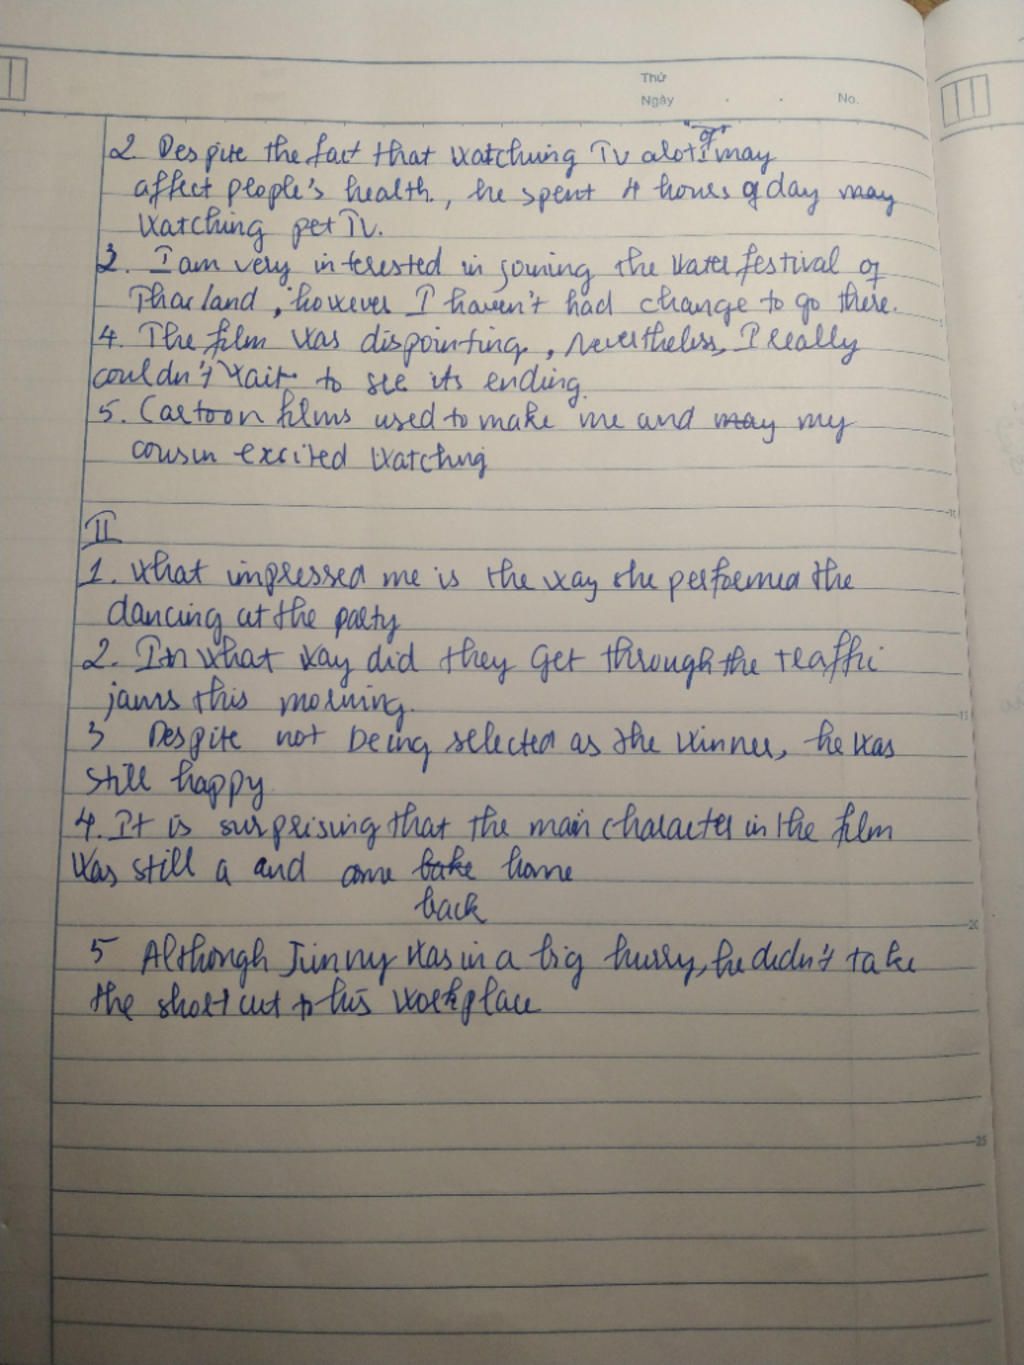 Thứ
Ngày . . No.
2. Despite the fact that watching TV alot of may
affect people's health, he spent 4 hours a day may
watching pet TV.
3. I am very interested in joining the water festival of
Thailand, however I haven't had change to go there.
4. The film was dispointing, nevertheless, I really
couldn't wait to see its ending.
5. Cartoon films used to make me and may my
cousin excited watching
II
1. What impressed me is the way she performed the
dancing at the party
2. In what way did they get through the traffic
jams this morning.
3 Despite not being selected as the winner, he was
still happy
4. It is surprising that the main character in the film
was still a and come bake home
back
5 Although Jimmy was in a big hurry, he didn't take
the short cut to his workplace
10
15
20
25